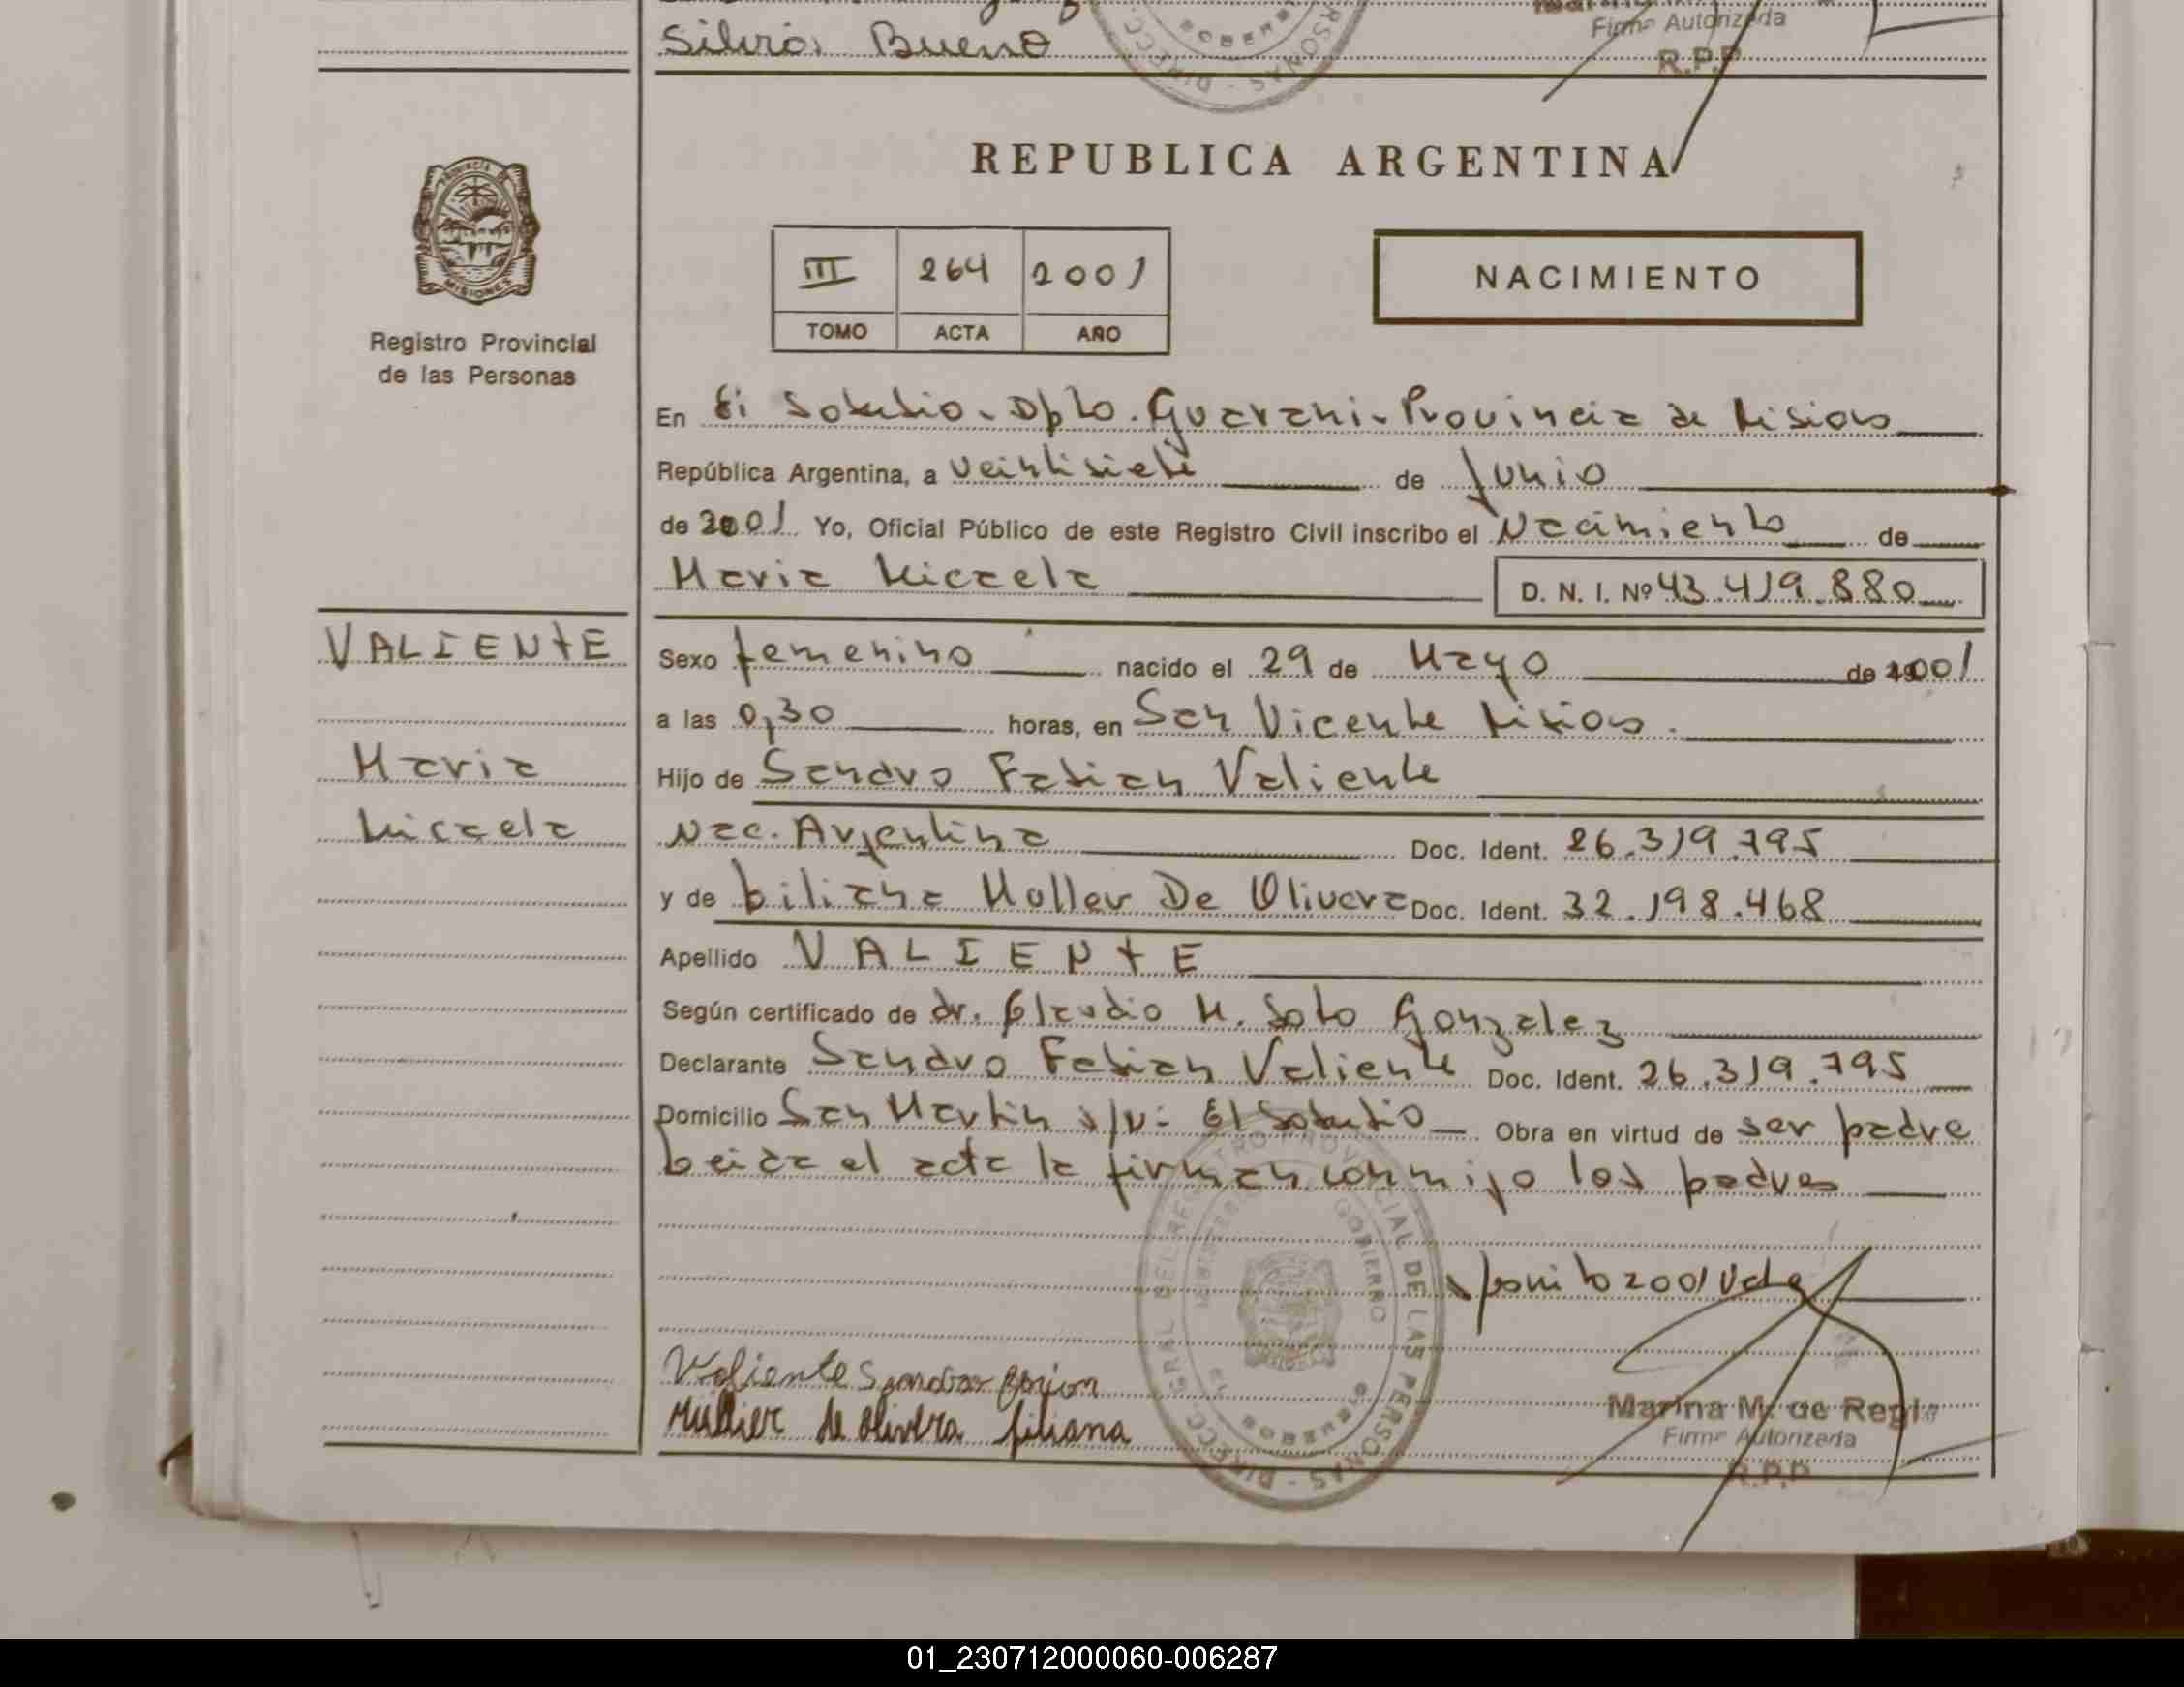 Silvia Bueno
Firma Autorizada
R.P.P
REPUBLICA ARGENTINA
PROVINCIA DE
MISIONES
III 264 2001
TOMO ACTA AÑO
NACIMIENTO
Registro Provincial
de las Personas
En El Soberbio - Dpto. Guarani - Provincia de Misiones
República Argentina, a veintisiete de Junio
de 2001 Yo, Oficial Público de este Registro Civil inscribo el Nacimiento de
Maria Micaela D. N. I. Nº 43.419.880
VALIENTE
Maria
Micaela
Sexo femenino nacido el 29 de Mayo de 2001
a las 0,30 horas, en San Vicente Misiones.
Hijo de Sandro Fabian Valiente
Nac. Argentina Doc. Ident. 26.319.795
y de Liliana Muller De Olivera Doc. Ident. 32.198.468
Apellido VALIENTE
Según certificado de dr. Claudio M. Soto Gonzalez
Declarante Sandro Fabian Valiente Doc. Ident. 26.319.795
Domicilio San Martin s/n: El Soberbio Obra en virtud de ser padre
Leida el acta la firman conmigo los padres
2001 Vale
Valiente Sandro Fabian
Muller de Olivera Liliana
DIRECC. GRAL DEL REGISTRO PROVINCIAL DE LAS PERSONAS
GOBIERNO
EL SOBERBIO
Marina M. de Regis
Firma Autorizada
R.P.P
01_230712000060-006287